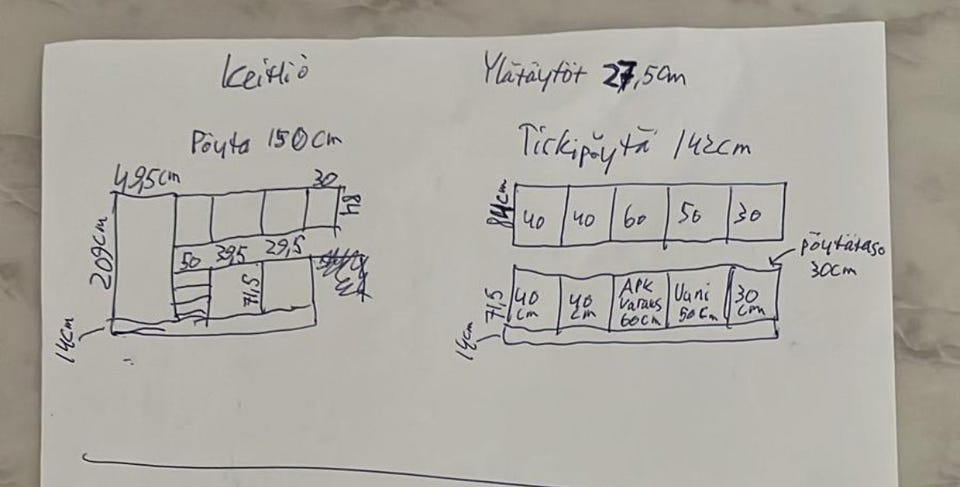 Keittiö
Pöytä 150cm
49,5cm
30
84
209cm
50
39,5
29,5
71,5
14cm
Ylätäytöt 27,5cm
Tiskipöytä 142cm
84cm
40
40
60
50
30
pöytätaso
30cm
71,5
40
cm
40
cm
APK
varaus
60cm
Uuni
50cm
30
cm
14cm